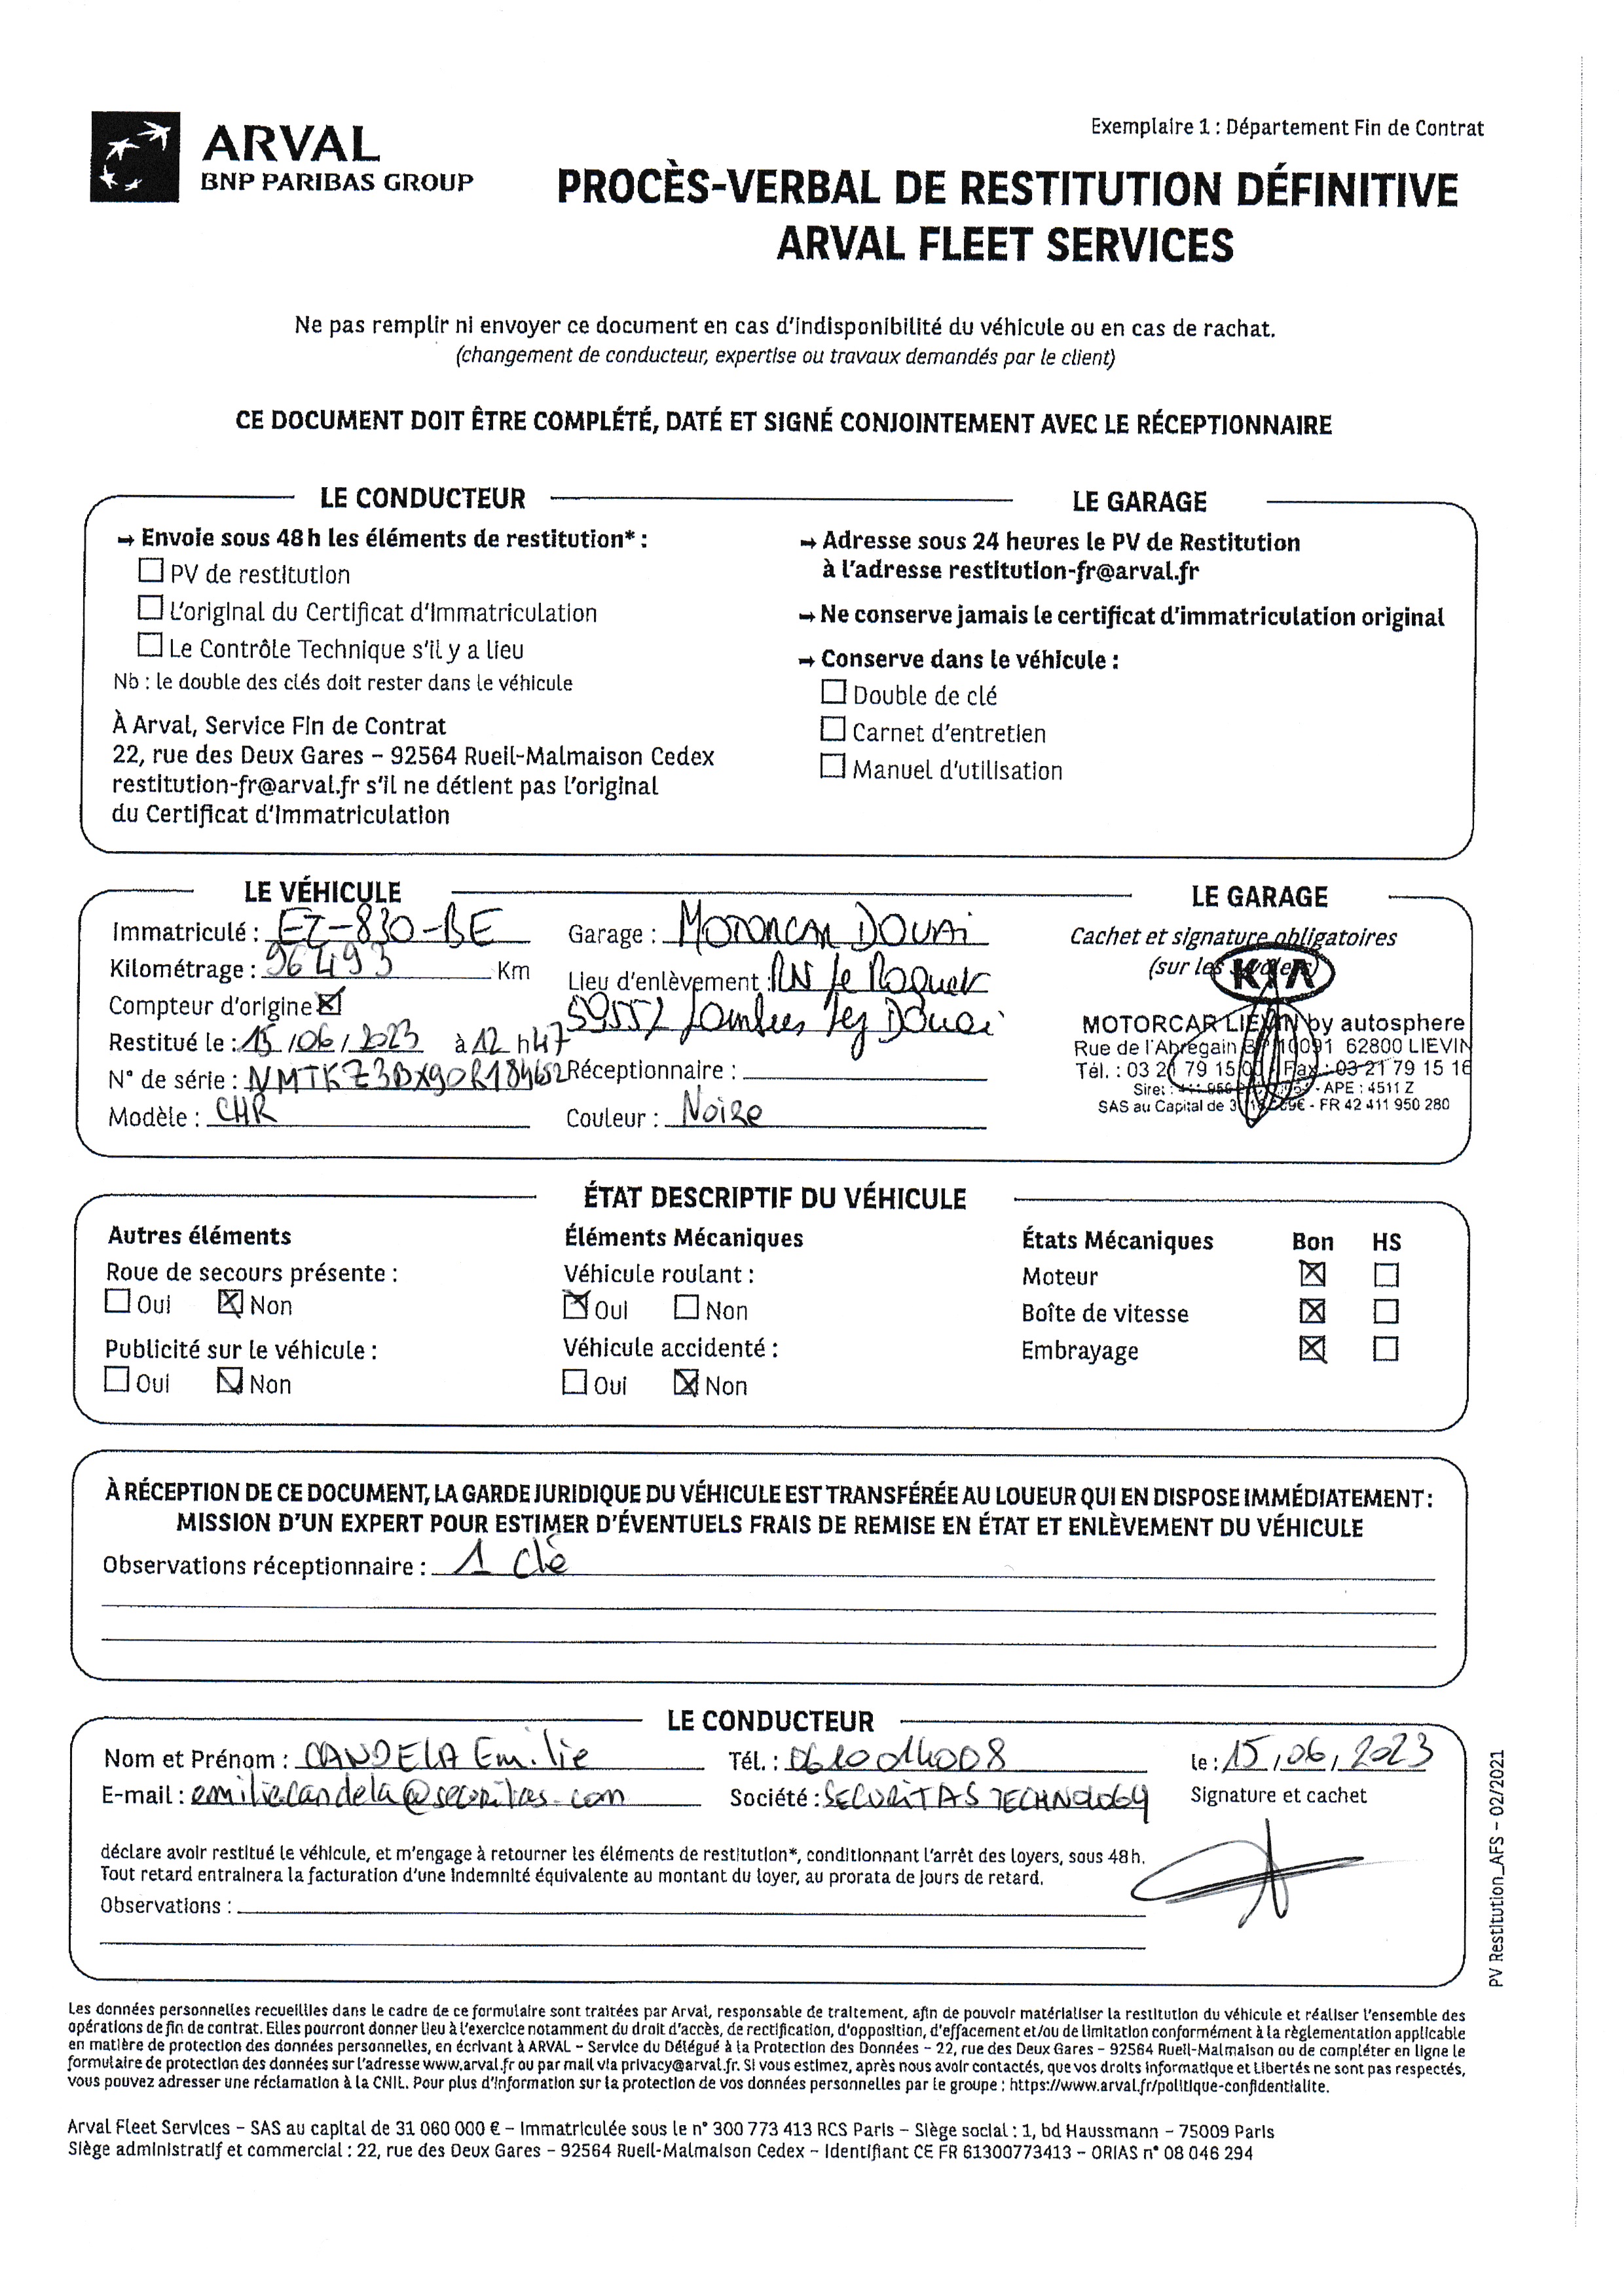 Exemplaire 1 : Département Fin de Contrat
ARVAL
BNP PARIBAS GROUP
PROCÈS-VERBAL DE RESTITUTION DÉFINITIVE
ARVAL FLEET SERVICES
Ne pas remplir ni envoyer ce document en cas d'indisponibilité du véhicule ou en cas de rachat.
(changement de conducteur, expertise ou travaux demandés par le client)
CE DOCUMENT DOIT ÊTRE COMPLÉTÉ, DATÉ ET SIGNÉ CONJOINTEMENT AVEC LE RÉCEPTIONNAIRE
LE CONDUCTEUR
→ Envoie sous 48 h les éléments de restitution* :
PV de restitution
L'original du Certificat d'Immatriculation
Le Contrôle Technique s'il y a lieu
Nb : le double des clés doit rester dans le véhicule
À Arval, Service Fin de Contrat
22, rue des Deux Gares – 92564 Rueil-Malmaison Cedex
restitution-fr@arval.fr s'il ne détient pas l'original
du Certificat d'Immatriculation
LE GARAGE
→ Adresse sous 24 heures le PV de Restitution
à l'adresse restitution-fr@arval.fr
→ Ne conserve jamais le certificat d'immatriculation original
→ Conserve dans le véhicule :
Double de clé
Carnet d'entretien
Manuel d'utilisation
LE VÉHICULE
Immatriculé : EZ-830-BE
Kilométrage : 96493 Km
Compteur d'origine
Restitué le : 15/06/2023 à 12 h 47
N° de série :
Modèle : CHR
Garage : MOTORCAR DOUAI
Lieu d'enlèvement : RN le Raquet
59552 Lambres lez Douai
Réceptionnaire :
Couleur : Noire
LE GARAGE
Cachet et signature obligatoires
(sur les
KIA
MOTORCAR LIEVIN by autosphere
Rue de l'Abregain BP 10091 62800 LIEVIN
Tél. : 03 21 79 15 Fax : 03 21 79 15 16
Siret : - APE : 4511 Z
SAS au Capital de - FR 42 411 950 280
ÉTAT DESCRIPTIF DU VÉHICULE
Autres éléments
Roue de secours présente :
Oui Non
Publicité sur le véhicule :
Oui Non
Éléments Mécaniques
Véhicule roulant :
Oui Non
Véhicule accidenté :
Oui Non
États Mécaniques Bon HS
Moteur
Boîte de vitesse
Embrayage
À RÉCEPTION DE CE DOCUMENT, LA GARDE JURIDIQUE DU VÉHICULE EST TRANSFÉRÉE AU LOUEUR QUI EN DISPOSE IMMÉDIATEMENT :
MISSION D'UN EXPERT POUR ESTIMER D'ÉVENTUELS FRAIS DE REMISE EN ÉTAT ET ENLÈVEMENT DU VÉHICULE
Observations réceptionnaire : 1 clé
LE CONDUCTEUR
Nom et Prénom : CANDELA Emilie
Tél. : 0610014008
le : 15/06/2023
E-mail : emilie.candela@securitas.com
Société : SECURITAS TECHNOLOGY
Signature et cachet
déclare avoir restitué le véhicule, et m'engage à retourner les éléments de restitution*, conditionnant l'arrêt des loyers, sous 48 h.
Tout retard entrainera la facturation d'une indemnité équivalente au montant du loyer, au prorata de jours de retard.
Observations :
PV Restitution_AFS – 02/2021
Les données personnelles recueillies dans le cadre de ce formulaire sont traitées par Arval, responsable de traitement, afin de pouvoir matérialiser la restitution du véhicule et réaliser l'ensemble des
opérations de fin de contrat. Elles pourront donner lieu à l'exercice notamment du droit d'accès, de rectification, d'opposition, d'effacement et/ou de limitation conformément à la règlementation applicable
en matière de protection des données personnelles, en écrivant à ARVAL – Service du Délégué à la Protection des Données – 22, rue des Deux Gares – 92564 Rueil-Malmaison ou de compléter en ligne le
formulaire de protection des données sur l'adresse www.arval.fr ou par mail via privacy@arval.fr. Si vous estimez, après nous avoir contactés, que vos droits Informatique et Libertés ne sont pas respectés,
vous pouvez adresser une réclamation à la CNIL. Pour plus d'information sur la protection de vos données personnelles par le groupe : https://www.arval.fr/politique-confidentialite.
Arval Fleet Services – SAS au capital de 31 060 000 € – Immatriculée sous le n° 300 773 413 RCS Paris – Siège social : 1, bd Haussmann – 75009 Paris
Siège administratif et commercial : 22, rue des Deux Gares – 92564 Rueil-Malmaison Cedex – Identifiant CE FR 61300773413 – ORIAS n° 08 046 294